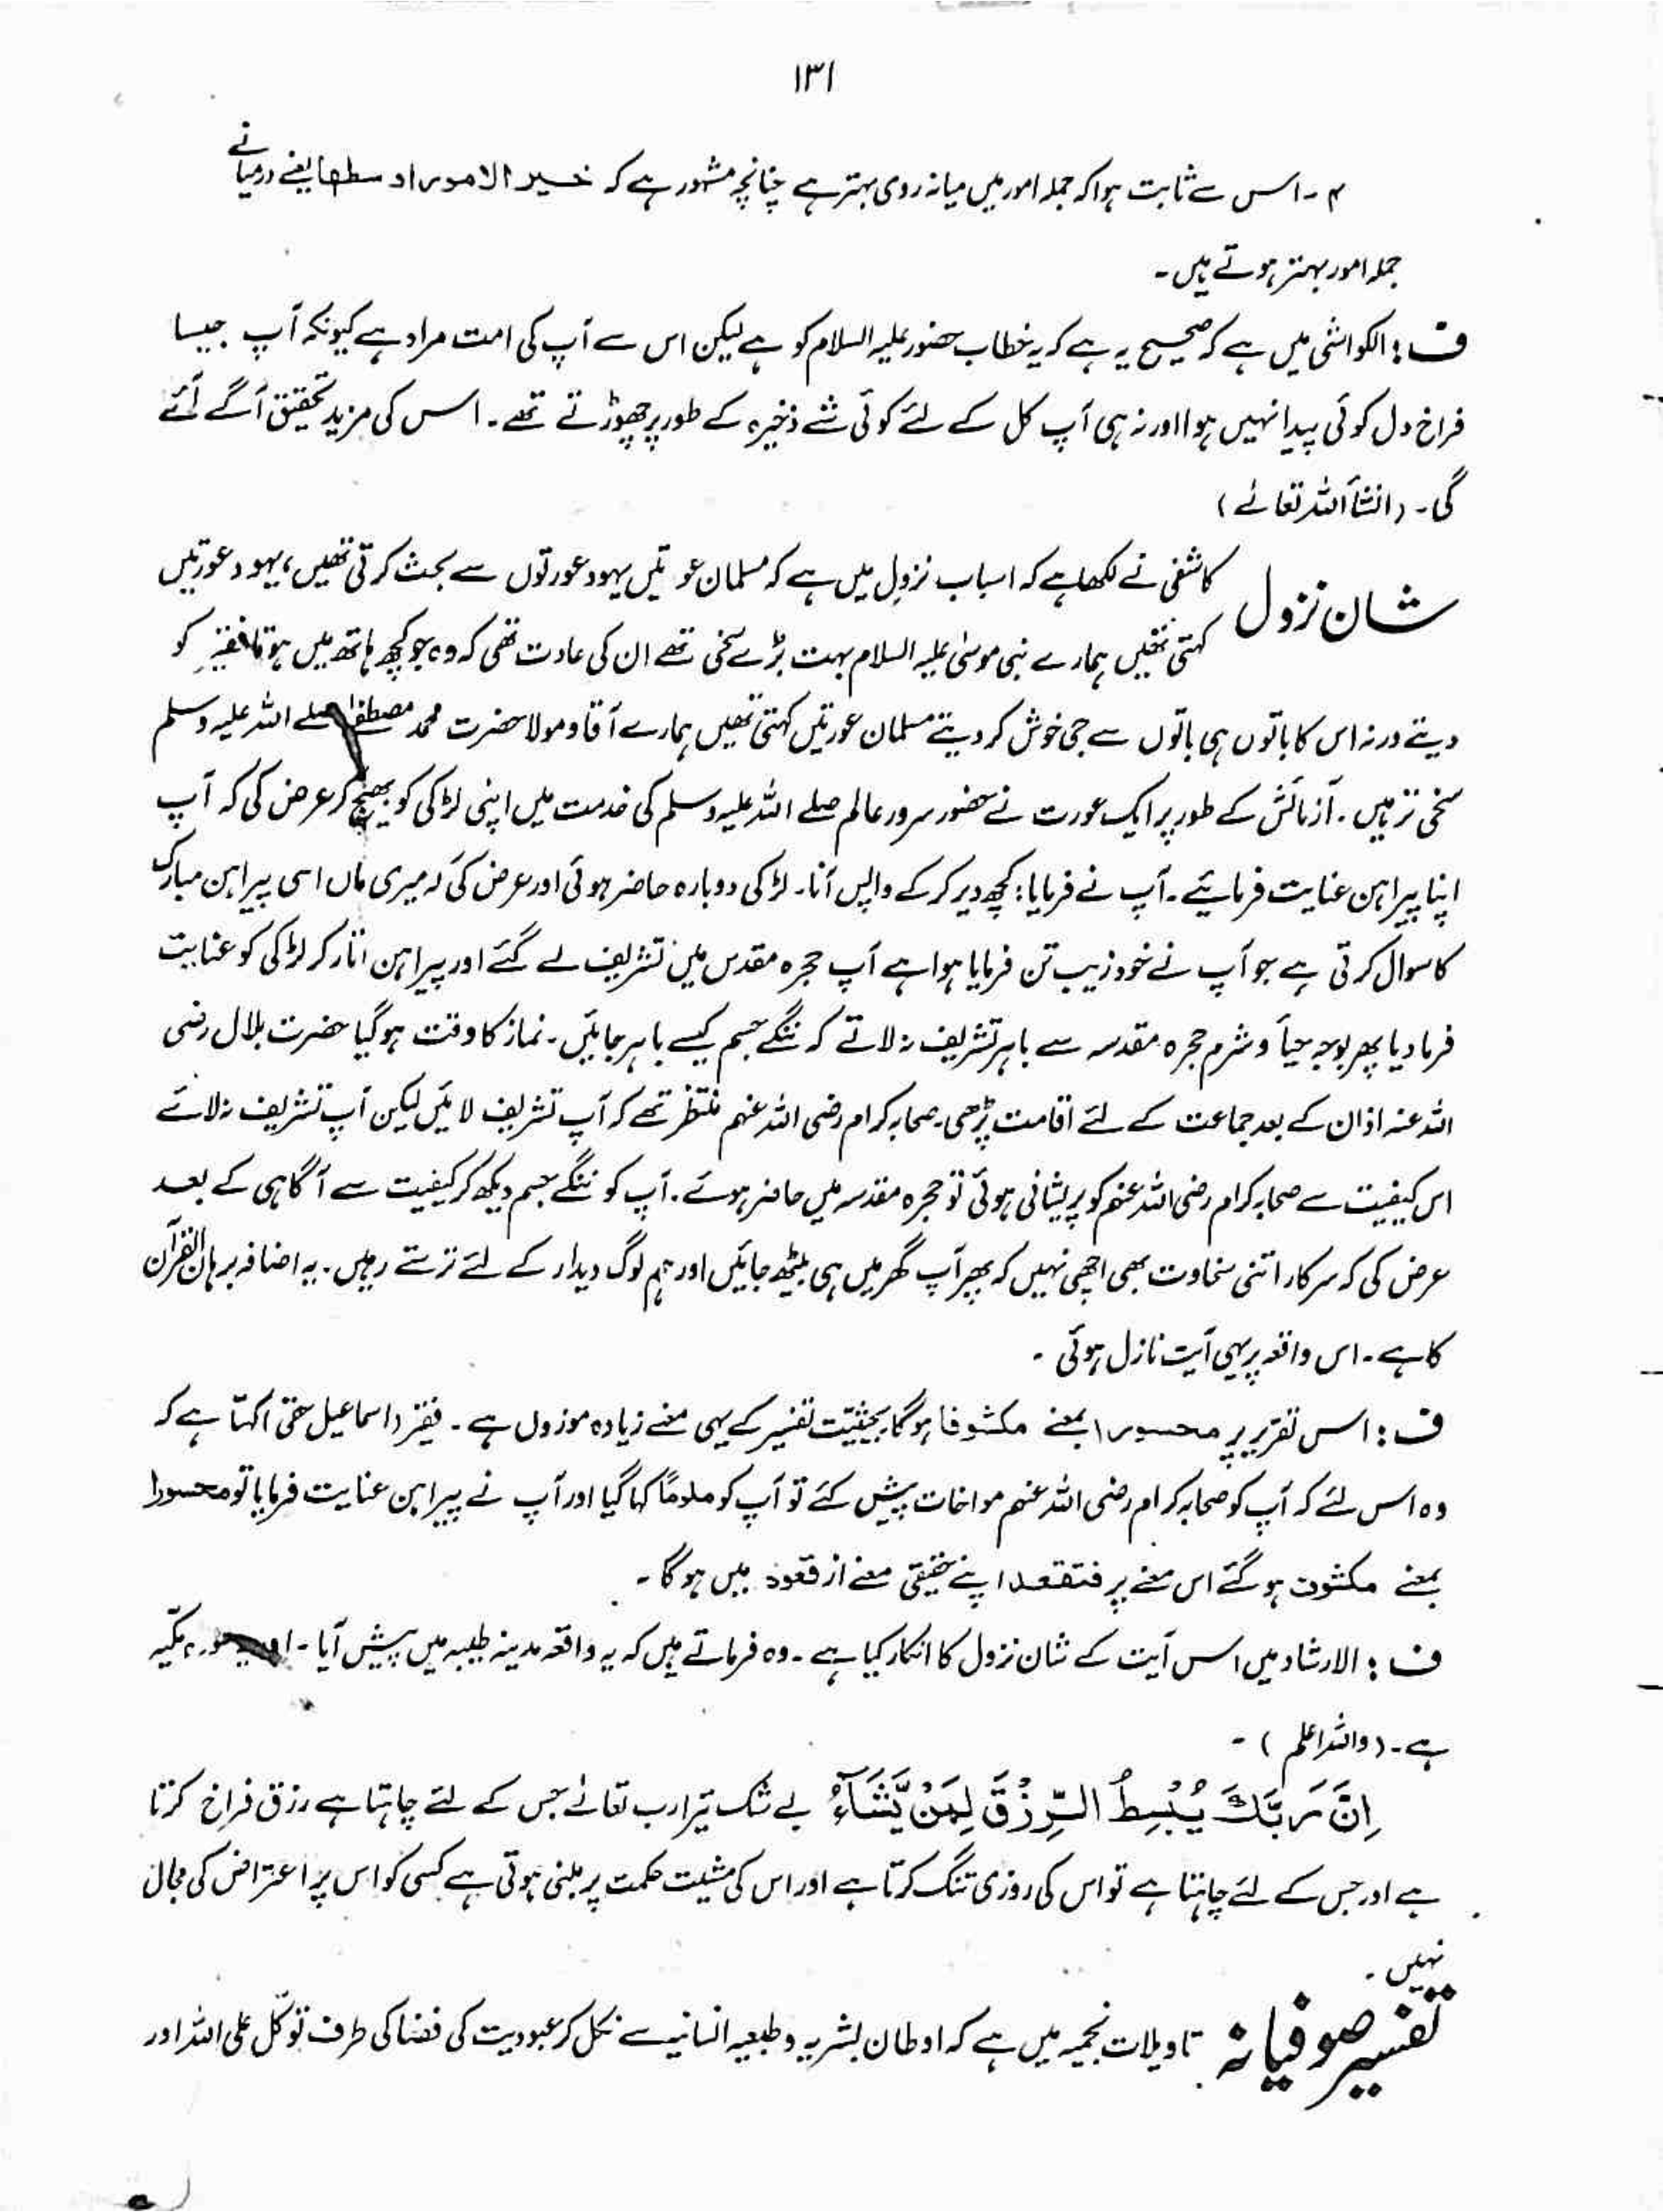 ۱۳۱
۴ ۔ اس سے ثابت ہوا کہ جملہ امور میں میانہ روی بہتر ہے چنانچہ مشہور ہے کہ خیر الامور اوسطہا یعنے درمیانے
جملہ امور بہتر ہوتے ہیں ۔
ف : الکواشی میں ہے کہ صحیح یہ ہے کہ یہ خطاب حضور علیہ السلام کو ہے لیکن اس سے آپ کی امت مراد ہے کیونکہ آپ جیسا
فراخ دل کوئی پیدا نہیں ہوا اور نہ ہی آپ کل کے لئے کوئی شے ذخیرہ کے طور پر چھوڑتے تھے ۔ اس کی مزید تحقیق آگے آئے
گی ۔ (انشآاللہ تعالےٰ)
شان نزول کاشفی نے لکھا ہے کہ اسباب نزول میں ہے کہ مسلمان عورتیں یہود عورتوں سے بحث کرتی تھیں ، یہود عورتیں
کہتی تھیں ہمارے نبی موسیٰ علیہ السلام بہت بڑے سخی تھے ان کی عادت تھی کہ وہ جو کچھ ہاتھ میں ہوتا فقیر کو
دیتے ورنہ اس کا باتوں ہی باتوں سے جی خوش کر دیتے مسلمان عورتیں کہتی تھیں ہمارے آقا و مولا حضرت محمد مصطفےٰ صلے اللہ علیہ وسلم
سخی تر ہیں ۔ آزمائش کے طور پر ایک عورت نے حضور سرور عالم صلے اللہ علیہ وسلم کی خدمت میں اپنی لڑکی کو بھیج کر عرض کی کہ آپ
اپنا پیراہن عنایت فرمائیے ۔ آپ نے فرمایا : کچھ دیر کر کے واپس آنا ۔ لڑکی دوبارہ حاضر ہوئی اور عرض کی کہ میری ماں اسی پیراہن مبارک
کا سوال کرتی ہے جو آپ نے خود زیب تن فرمایا ہوا ہے آپ حجرہ مقدس میں تشریف لے گئے اور پیراہن اتار کر لڑکی کو عنایت
فرما دیا پھر بوجہ حیآ و شرم حجرہ مقدسہ سے باہر تشریف نہ لاتے کہ ننگے جسم کیسے باہر جائیں ۔ نماز کا وقت ہو گیا حضرت بلال رضی
اللہ عنہ اذان کے بعد جماعت کے لئے اقامت پڑھی ۔ صحابہ کرام رضی اللہ عنہم منتظر تھے کہ آپ تشریف لائیں لیکن آپ تشریف نہ لائے
اس کیفیت سے صحابہ کرام رضی اللہ عنہم کو پریشانی ہوئی تو حجرہ مقدسہ میں حاضر ہوئے ۔ آپ کو ننگے جسم دیکھ کر کیفیت سے آگاہی کے بعد
عرض کی کہ سرکار اتنی سخاوت بھی اچھی نہیں کہ پھر آپ گھر میں ہی بیٹھ جائیں اور ہم لوگ دیدار کے لئے ترستے رہیں ۔ یہ اضافہ برہان القرآن
کا ہے ۔ اس واقعہ پر یہی آیت نازل ہوئی ۔
ف : اس تقریر پر محسورا بمعنے مکشوفا ہوگا بحیثیت تفسیر کے یہی معنے زیادہ موزوں ہے ۔ فقیر (اسماعیل حقی) کہتا ہے کہ
وہ اس لئے کہ آپ کو صحابہ کرام رضی اللہ عنہم مواخات پیش کئے تو آپ کو ملوماً کہا گیا اور آپ نے پیراہن عنایت فرمایا تو محسورا
بمعنے مکشوف ہو گئے اس معنے پر فتقعد اپنے حقیقی معنے از قعود میں ہوگا ۔
ف : الارشاد میں اس آیت کے شان نزول کا انکار کیا ہے ۔ وہ فرماتے ہیں کہ یہ واقعہ مدینہ طیبہ میں پیش آیا ۔ مکیّہ
ہے ۔ (واللہ اعلم) ۔
اِنَّ رَبَّكَ يَبْسُطُ الرِّزْقَ لِمَنْ يَّشَآءُ بے شک تیرا رب تعالےٰ جس کے لئے چاہتا ہے رزق فراخ کرتا
ہے اور جس کے لئے چاہتا ہے تو اس کی روزی تنگ کرتا ہے اور اس کی مشیت حکمت پر مبنی ہوتی ہے کسی کو اس پر اعتراض کی مجال
نہیں ۔
تفسیر صوفیانہ تاویلات نجمیہ میں ہے کہ اوطان بشریہ و طبعیہ انسانیہ سے نکل کر عبودیت کی فضا کی طرف توکّل علی اللہ اور